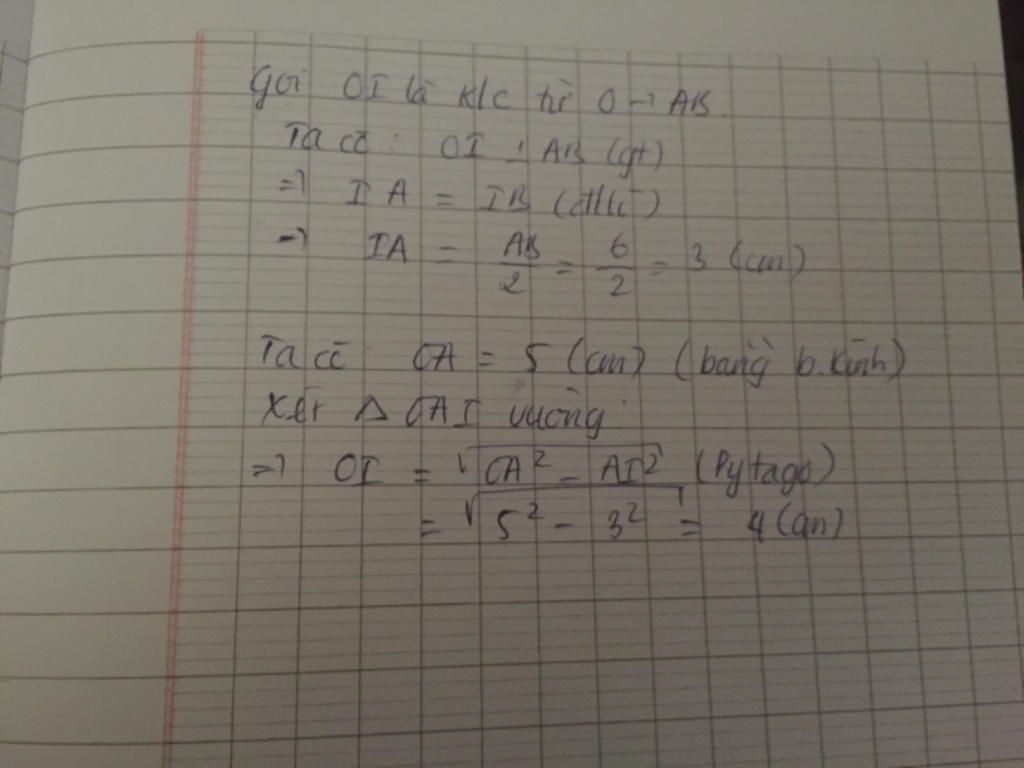 Gọi OI là k/c từ O → AB.
Ta có: OI ⊥ AB (gt)
=> IA = IB (đlí)
=> IA = AB/2 = 6/2 = 3 (cm)
Ta có OA = 5 (cm) (bằng b.kính)
Xét Δ OAI vuông:
=> OI = √(OA² - AI²) (Pytago)
= √(5² - 3²) = 4 (cm)